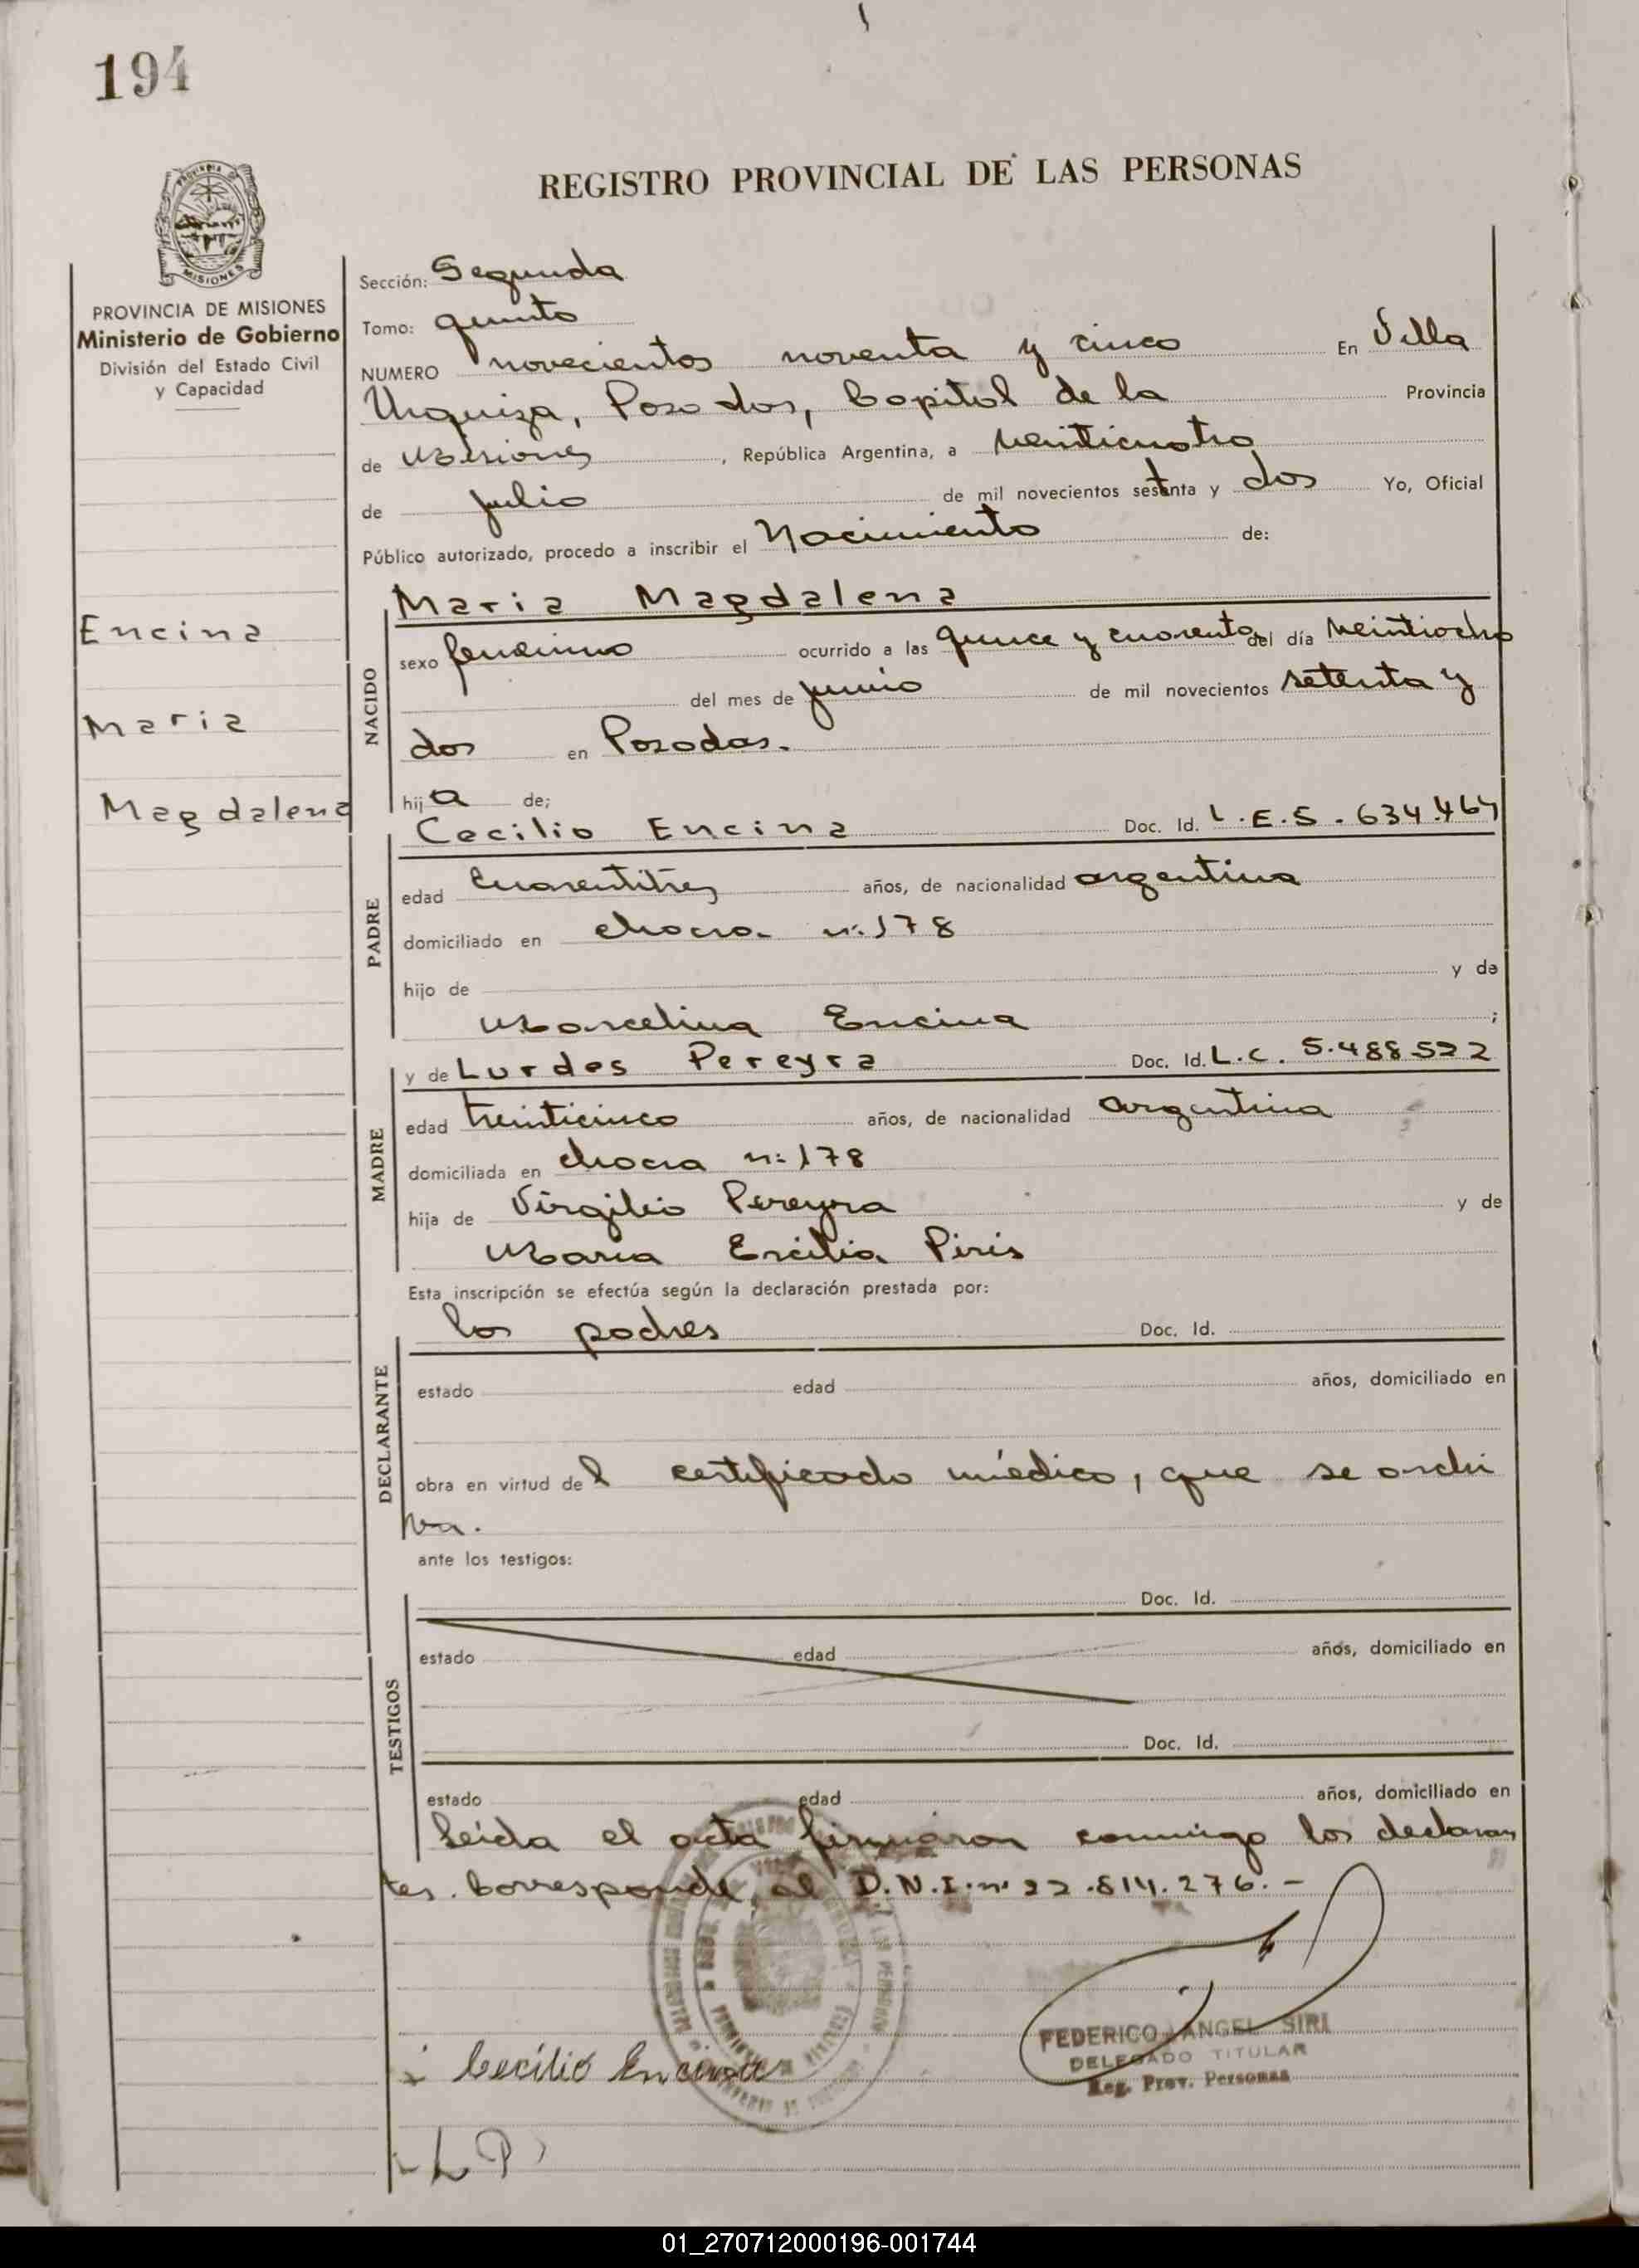 194
REGISTRO PROVINCIAL DE LAS PERSONAS
MISIONES
PROVINCIA DE MISIONES
Ministerio de Gobierno
División del Estado Civil
y Capacidad
Encina
Maria
Magdalena
Sección: Segunda
Tomo: quinto
NUMERO novecientos noventa y cinco En Villa
Urquiza, Posadas, Capital de la Provincia
de Misiones, República Argentina, a veinticuatro
de julio de mil novecientos setenta y dos Yo, Oficial
Público autorizado, procedo a inscribir el Nacimiento de:
NACIDO
Maria Magdalena
sexo femenino ocurrido a las quince y cuarenta del día veintiocho
del mes de junio de mil novecientos setenta y
dos en Posadas.
hija de;
PADRE
Cecilio Encina Doc. Id. L.E.5.634.464
edad cuarentitres años, de nacionalidad argentina
domiciliado en chacra n:178
hijo de y de
Marcelina Encina ;
MADRE
y de Lurdes Pereyra Doc. Id. L.C. 5.488.522
edad treinticinco años, de nacionalidad argentina
domiciliada en chacra n:178
hija de Virgilio Pereyra y de
Maria Ercilia Piris
Esta inscripción se efectúa según la declaración prestada por:
DECLARANTE
los padres Doc. Id.
estado edad años, domiciliado en
obra en virtud del certificado médico, que se archi
va.
ante los testigos:
TESTIGOS
Doc. Id.
estado edad años, domiciliado en
Doc. Id.
estado edad años, domiciliado en
Leida el acta firmaron conmigo los declaran
tes. Corresponde al D.N.I.nº 22.814.276.-
FEDERICO ANGEL SIRI
DELEGADO TITULAR
Reg. Prov. Personas
Cecilio Encina
L P
01_270712000196-001744